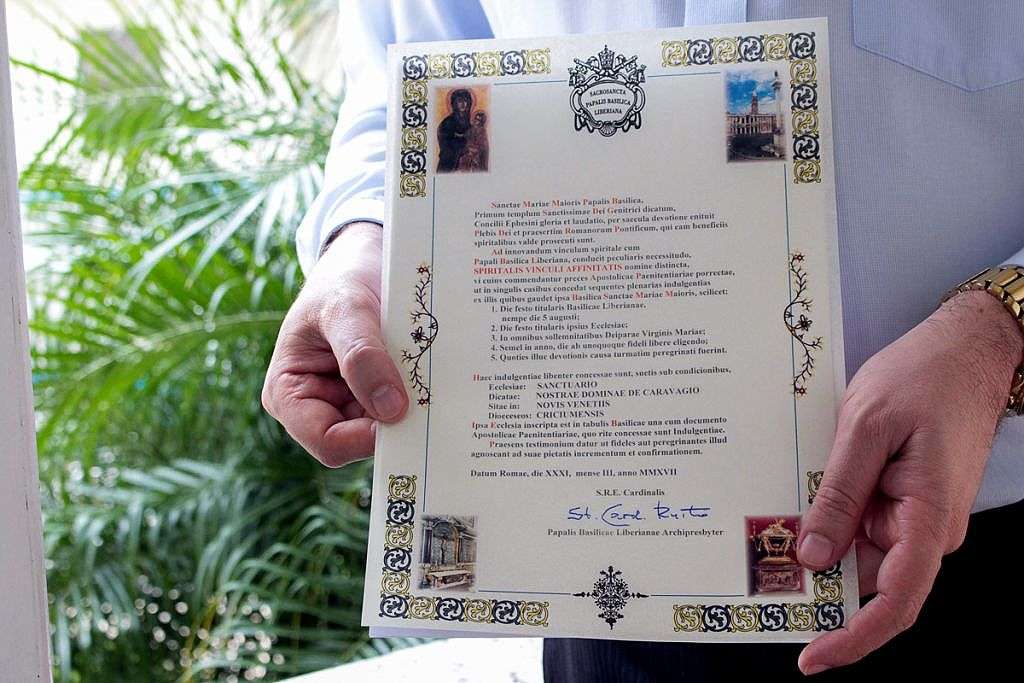 SACROSANCTA
PAPALIS BASILICA
LIBERIANA
Sanctae Mariae Maioris Papalis Basilica,
Primum templum Sanctissimae Dei Genitrici dicatum,
Concilii Ephesini gloria et laudatio, per saecula devotione enituit
Plebis Dei et praesertim Romanorum Pontificum, qui eam beneficiis
spiritalibus valde prosecuti sunt.
Ad innovandum vinculum spiritale cum
Papali Basilica Liberiana, conducit peculiaris necessitudo,
SPIRITALIS VINCULI AFFINITATIS nomine distincta,
vi cuius commendantur preces Apostolicae Paenitentiariae porrectae,
ut in singulis casibus concedat sequentes plenarias indulgentias
ex illis quibus gaudet ipsa Basilica Sanctae Mariae Maioris, scilicet:
1. Die festo titularis Basilicae Liberianae,
nempe die 5 augusti;
2. Die festo titularis ipsius Ecclesiae;
3. In omnibus sollemnitatibus Deiparae Virginis Mariae;
4. Semel in anno, die ab unoquoque fideli libere eligendo;
5. Quoties illuc devotionis causa turmatim peregrinati fuerint.
Haec indulgentiae libenter concessae sunt, suetis sub condicionibus,
Ecclesiae: SANCTUARIO
Dicatae: NOSTRAE DOMINAE DE CARAVAGIO
Sitae in: NOVIS VENETIIS
Dioeceseos: CRICIUMENSIS
Ipsa Ecclesia inscripta est in tabulis Basilicae una cum documento
Apostolicae Paenitentiariae, quo rite concessae sunt Indulgentiae.
Praesens testimonium datur ut fideles aut peregrinantes illud
agnoscant ad suae pietatis incrementum et confirmationem.
Datum Romae, die XXXI, mense III, anno MMXVII
S.R.E. Cardinalis
St. Card. Ryłko
Papalis Basilicae Liberianae Archipresbyter